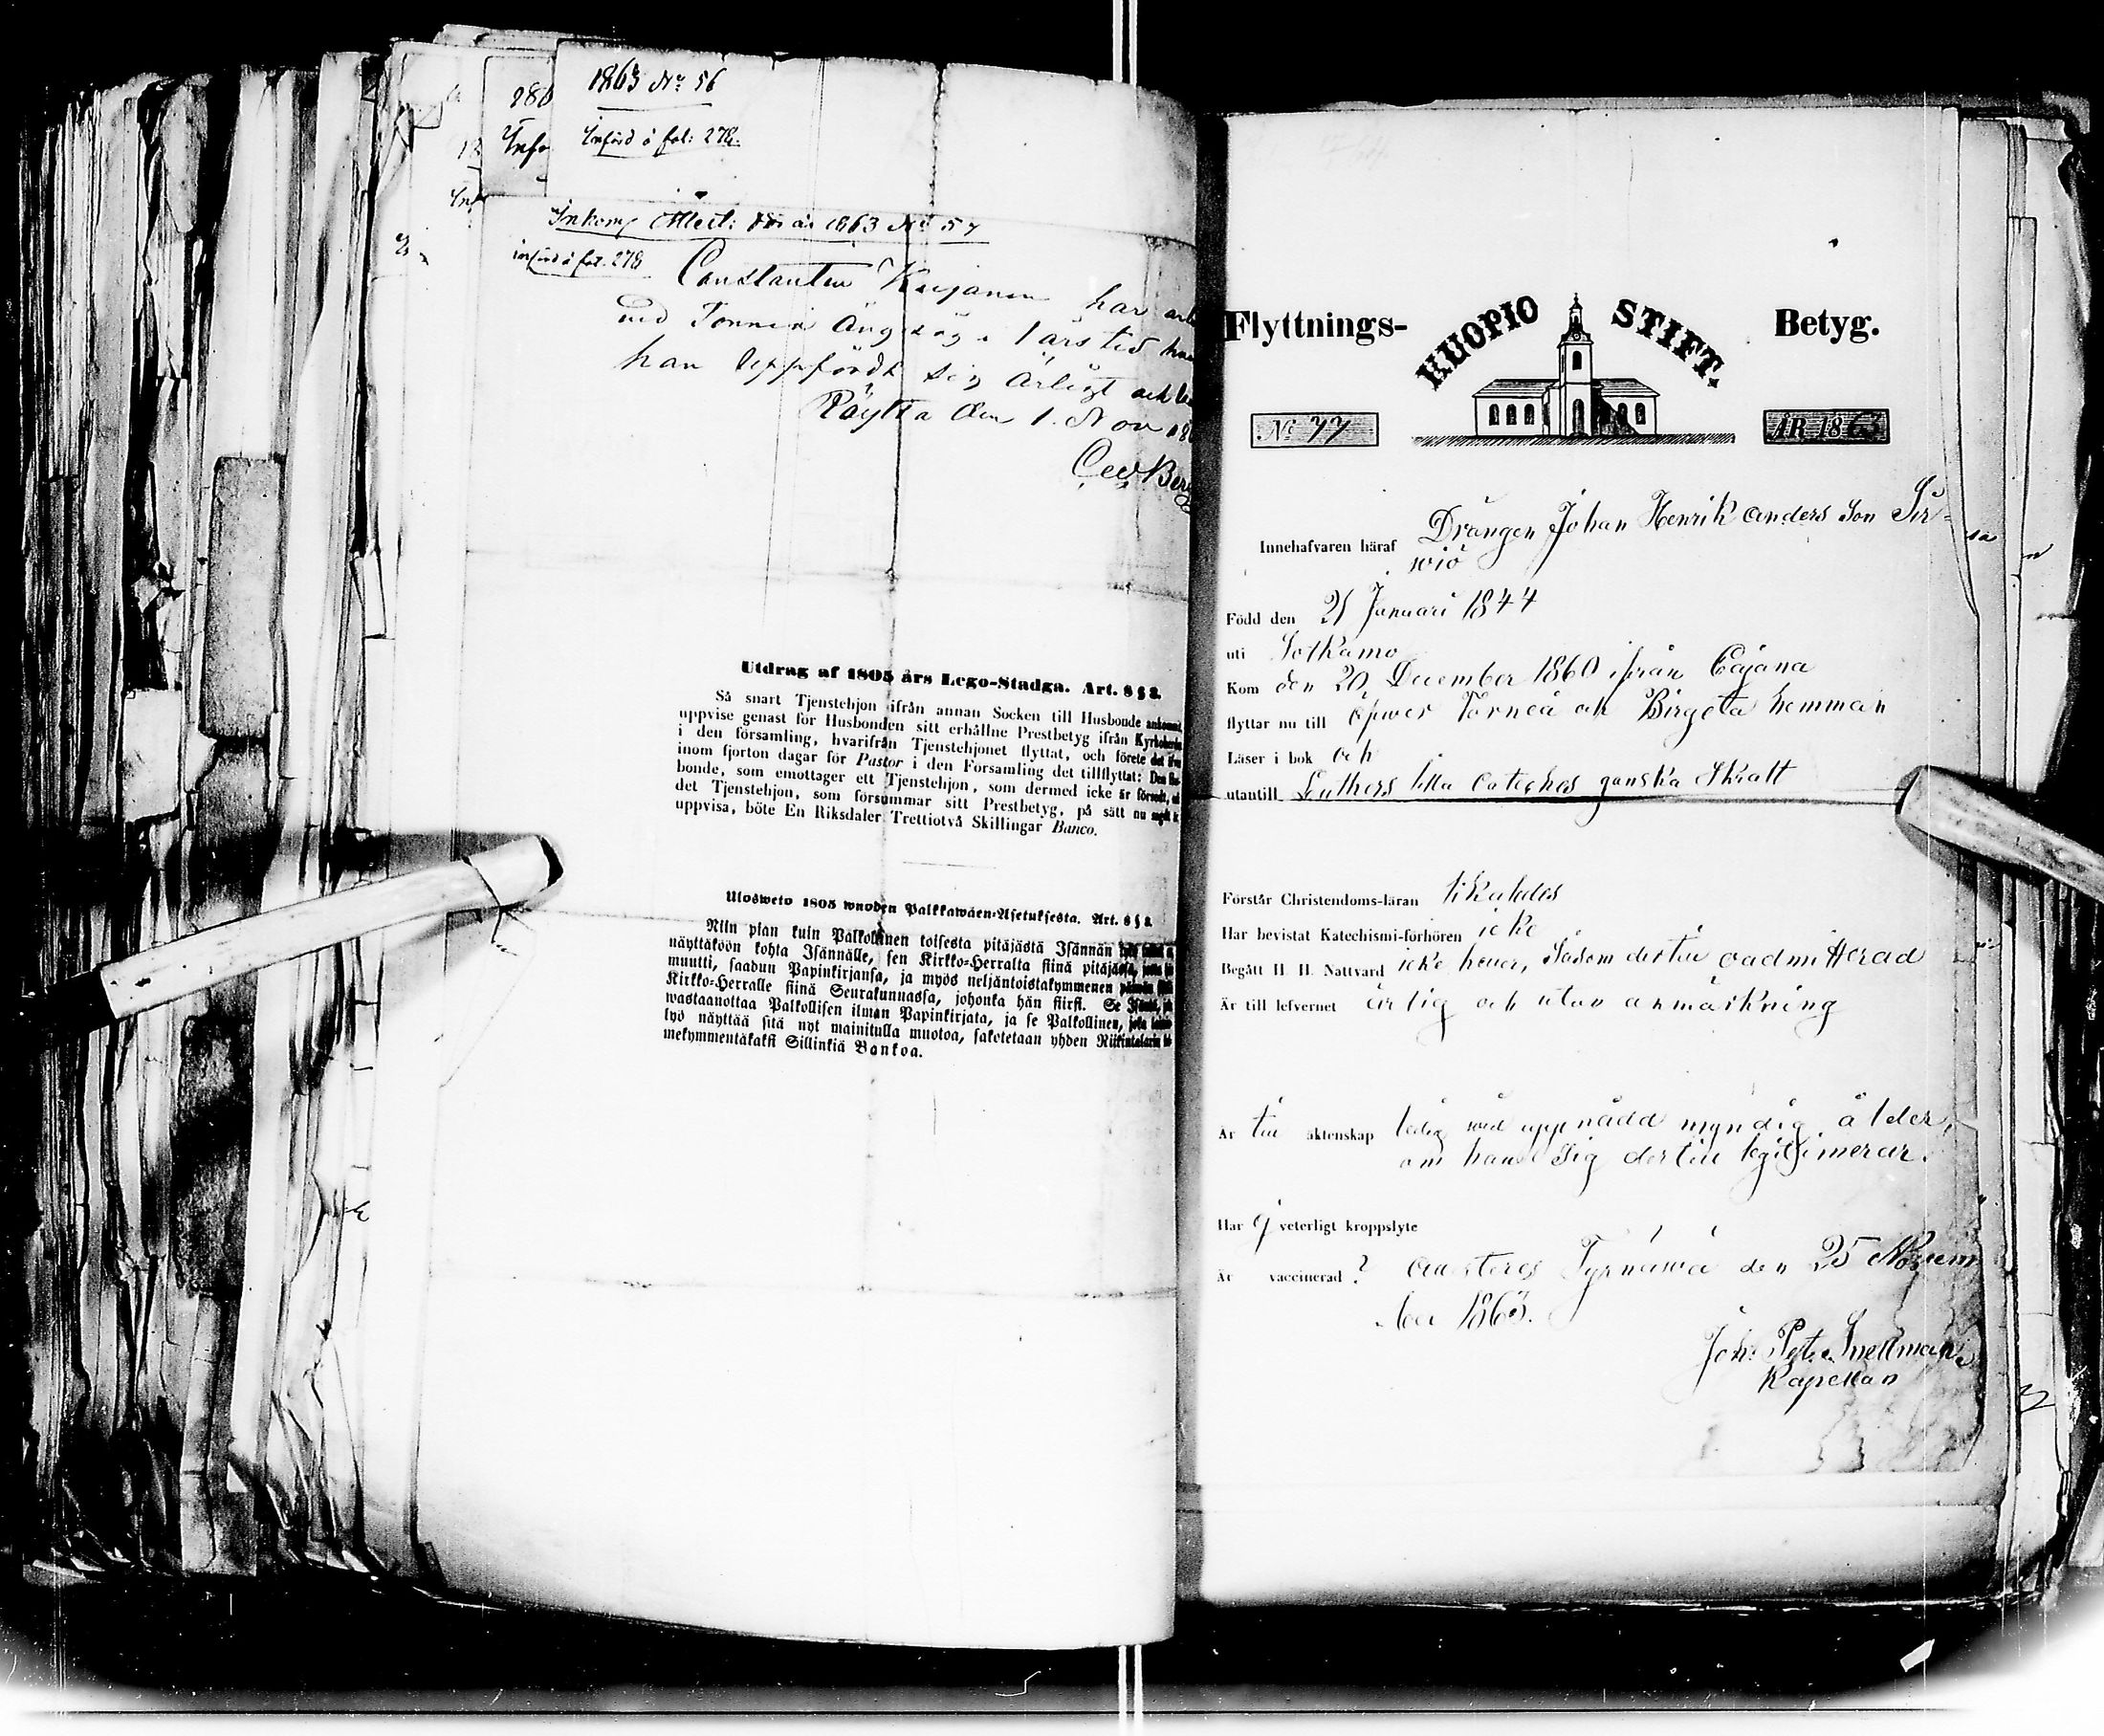 1863 No 56
Införd å fol: 278.
Inkom Attest: för år 1863 No 57
införd å fol. 278
Constantin Kujanen har
ved Torneå Ångsåg i 1 års tid
han uppfördt sig ärligt och
Röyttä den 1. Nov
Utdrag af 1805 års Lego-Stadga. Art. 8 § 2.
Så snart Tjenstehjon ifrån annan Socken till Husbonde ankommit
uppvise genast för Husbonden sitt erhållne Prestbetyg ifrån Kyrkoherden
i den församling, hvarifrån Tjenstehjonet flyttat, och förete det
inom fjorton dagar för Pastor i den Församling det tillflyttat: Den
bonde, som emottager ett Tjenstehjon, som dermed icke är försedt,
det Tjenstehjon, som försummar sitt Prestbetyg, på sätt nu sagdt
uppvisa, böte En Riksdaler Trettiotvå Skillingar Banco.
Ulosweto 1805 wuoden Palkkawäen-Asetuksesta. Art. 8 § 2.
Niin pian kuin Palkollinen toisesta pitäjästä Isännän
näyttäköön kohta Isännälle, sen Kirkko-Herralta siinä pitäjässä,
muutti, saadun Papinkirjansa, ja myös neljäntoistakymmenen
Kirkko-Herralle siinä Seurakunnassa, johonka hän siirsi. Se
wastaanottaa Palkollisen ilman Papinkirjata, ja se Palkollinen,
lyö näyttää sitä nyt mainitulla muotoa, sakotetaan yhden Riikintalarin
mekymmentäkaksi Sillinkiä Bankoa.
Flyttnings- KUOPIO STIFT. Betyg.
No 77 ÅR 1863
Innehafvaren häraf Drängen Johan Henrik Anders Son Sir-
wiö
Född den 21 Januari 1844
uti Sotkamo
Kom den 20 December 1860 ifrån Cajana
flyttar nu till öfwer Torneå och Birgeta hemman
Läser i bok och
utantill Luthers lilla Cateches ganska Skralt
Förstår Christendoms-läran likaledes
Har bevistat Katechismi-förhören icke
Begått H. H. Nattvard icke heller, Såsom dertill oadmitterad
Är till lefvernet ärlig och utan anmärkning
Är till äktenskap ledig wid uppnådd myndig ålder,
om han Sig dertill legitimerar.
Har ej veterligt kroppslyte
Är vaccinerad? Attesteras Tyrnäwä den 25 Novem
ber 1863.
Joh. Pet. Snellman
Kapellan